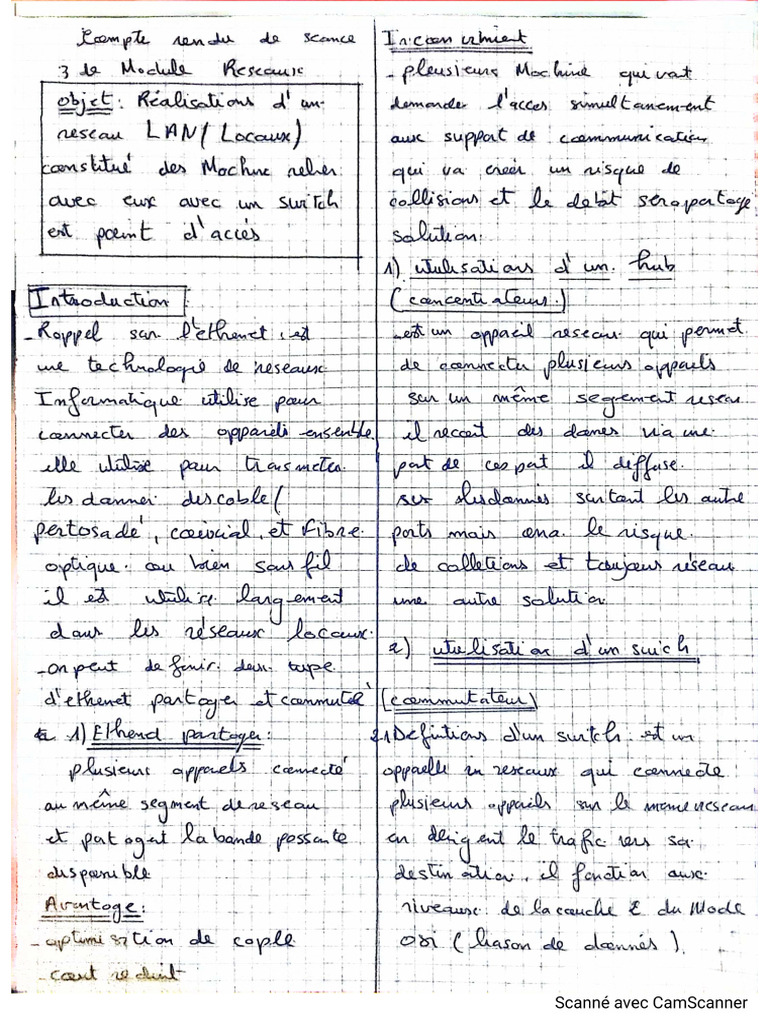 Compte rendu de seance
3 de Module Reseaux
objet: Réalisations d'un
reseau LAN (Locaux)
constitué des Machine relier
avec eux avec un switch
est point d'accés
Introduction
- Rappel sur l'ethenet: est
une technologie de reseaux
Informatique utilise pour
connecter des appareils ensemble
elle utilise pour transmeter
les danner des cable (
pertosadé, coaxial, et Fibre
optique ou bien sans fil
il est utilise largement
dans les réseaux locaux.
- on peut definir deux type
d'ethenet partager et commuté
1) Ethend partager:
plusieurs appareils connecté
au même segment de reseau
et partagent la bande passante
disponible
Avantage:
- optimisation de cople
- cout reduint
Inconvenient
- pleusieurs Machine qui vat
demande l'acces simultanement
aux support de communication
qui va creer un risque de
collisions et le debit sera partage
solution:
1) utulisations d'un hub
(concentrateurs)
- est un appareil reseau qui permet
de connecter plusieurs appareils
sur un même segement reseau
il recoit des donnes via une
port de ces port il deffuse
les données surtout les autre
ports mais ona le risque
de colletions et toujour réseau
une autre solution
2) utulisation d'un swich
(commutateur)
2.1 Definitions d'un switch: est un
appaelle in reseaux qui connecte
plusieurs appareils sur le meme reseau
en dirigent le trafic vers sa
destination, il fonction aux
niveaux de la couche 2 du Mode
osi (liason de dannés).
Scanné avec CamScanner